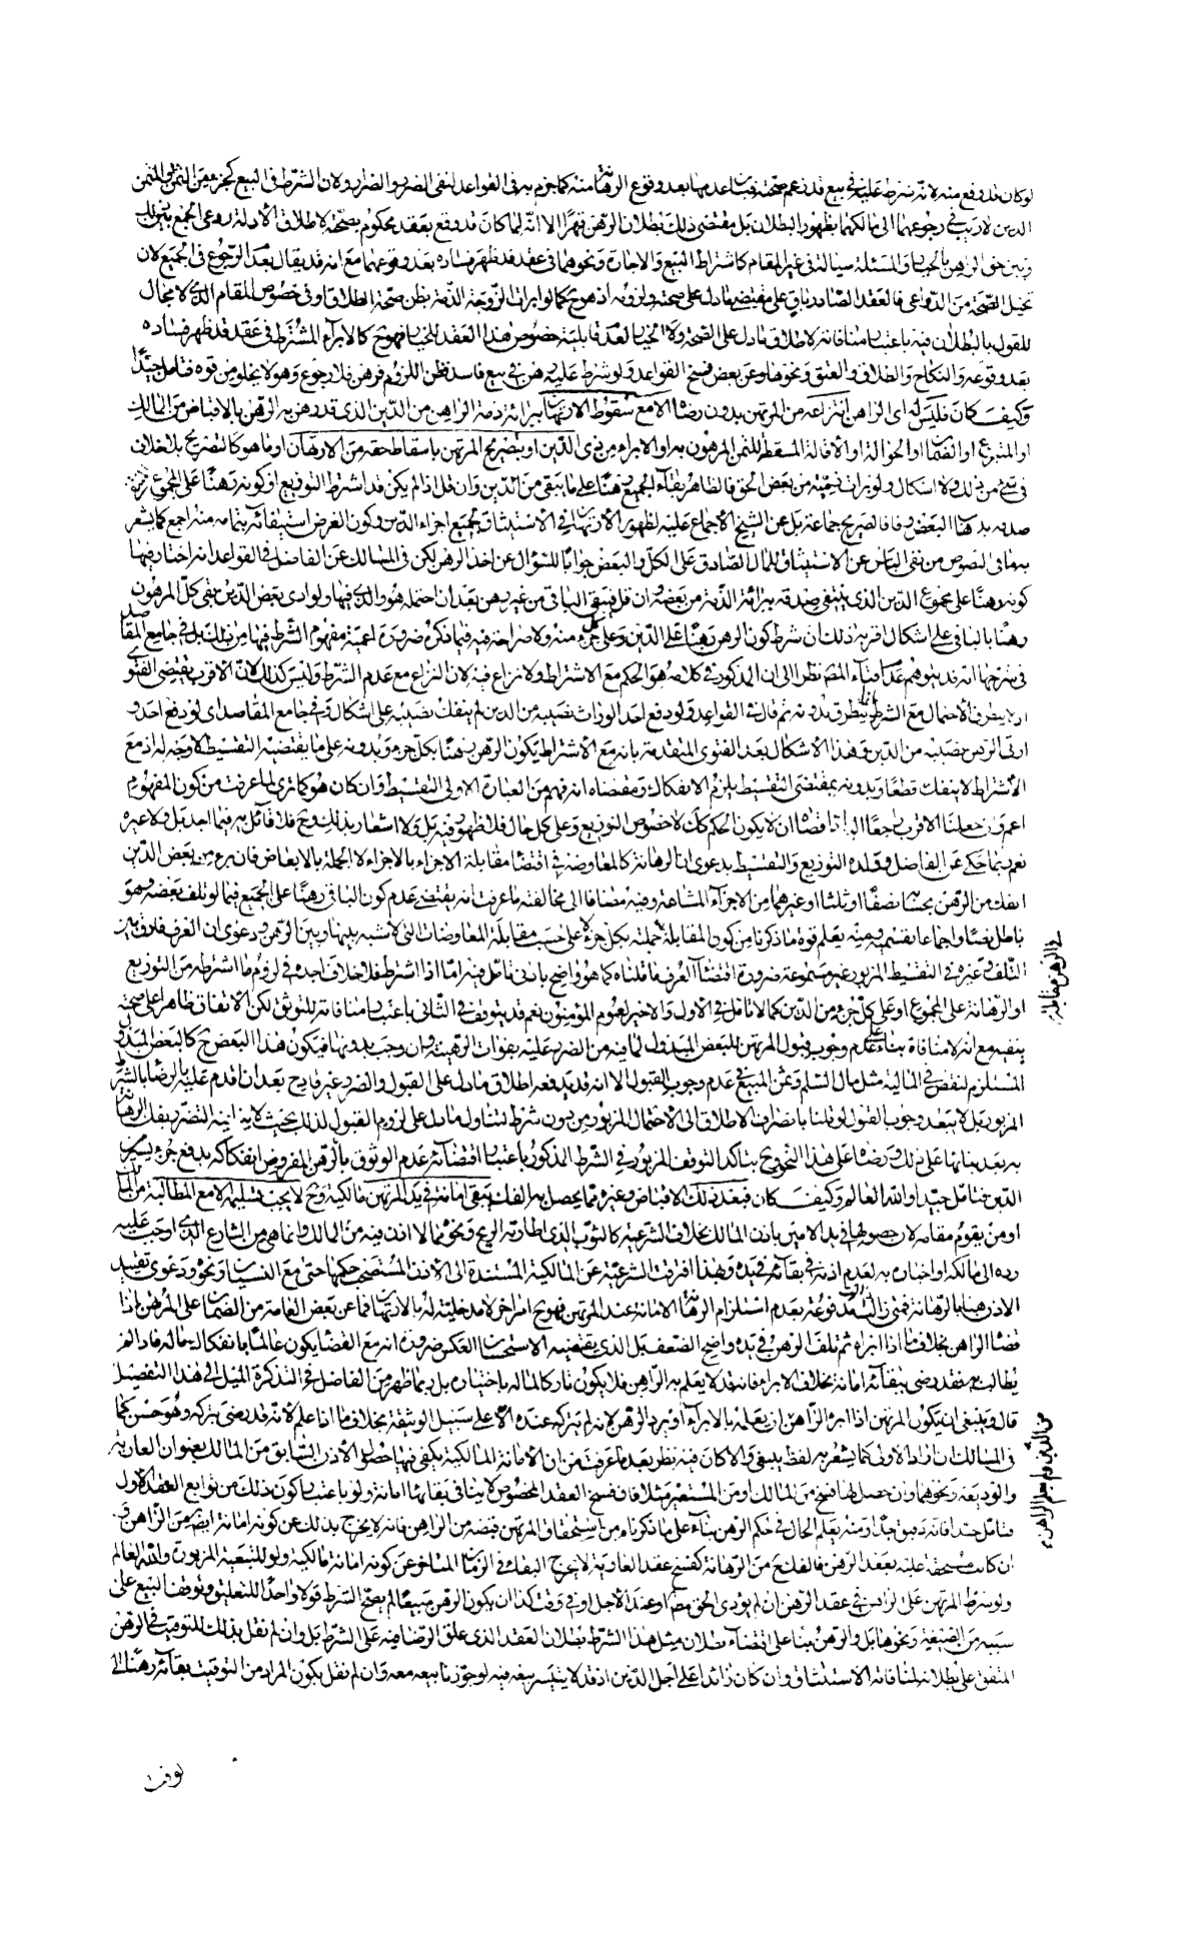 لو كان قد وقع منه لانه شرط عليه في بيع قد زعم صحته فبان عدمها بعد وقوع الرهانة منه كما جزم به في القواعد لنفي الضرر والضرار ولان الشرط في البيع كجزء من الثمن او المثمن
الذين لا ريب في رجوعهما الى مالكهما بظهور البطلان بل مقتضى ذلك بطلان الرهن قهرا الا انه لما كان قد وقع بعقد محكوم بصحته لاطلاق الادلة روعي الجمع بين ذلك
وبين حق الراهن بالخيار والمسئلة سيالة في غير المقام كاشتراط البيع والاجارة ونحوهما في عقد قد ظهر فساده بعد وقوعهما مع انه قد يقال بعدم الرجوع في الجميع لان
تخيل الصحة من الدواعي فالعقد الصادر باق على مقتضى ما دل على صحته ولزومه اذ هو ح كما لو ابرأت الزوجة الذمة بظن صحة الطلاق او في خصوص المقام الذي لا مجال
للقول بالبطلان فيه باعتبار منافاته لاطلاق ما دل على الصحة ولا الخيار لعدم قابلية خصوص هذا العقد للخيار فهو ح كالابراء المشترط في عقد قد ظهر فساده
بعد وقوعه والنكاح والطلاق والعتق ونحوها وعن بعض نسخ القواعد ولو شرط عليه رهن في بيع فاسد فظن اللزوم فرهن فلا رجوع وهو لا يخلو من قوة فتامل جيدا
وكيف كان فليس له اي الراهن انتزاعه من المرتهن بدون رضاه الا مع سقوط الارتهان ببرائة ذمة الراهن من الدين الذي قد رهن به الرهن بالاقباض من المالك
او المتبرع او الضمان او الحوالة او الاقالة المسقطة للثمن المرهون به او الابراء من ذي الدين او بتصريح المرتهن باسقاط حقه من الارتهان او ما هو كالتصريح بلا خلاف
في شيء من ذلك ولا اشكال ولو برئت ذمته من بعض الحق فالظاهر بقاء الجميع رهنا على ما بقي من الدين وان قل اذا لم يكن قد اشترط التوزيع او كونه رهنا على المجموع
صدقه بدهنا البعض وفاقا لصريح جماعة بل عن الشيخ الاجماع عليه لظهور الارتهان في الاستيثاق بجميع اجزاء الدين وكون الغرض استيفائه بتمامه منه اجمع كما يشعر
به ما في النصوص من نفي الباس عن الاستيثاق للمال الصادق على الكل والبعض جوابا للسؤال عن اخذ الرهن لكن في المسالك عن الفاضل في القواعد انه اختار فيها
كونه رهنا على مجموع الدين الذي ينتفي صدقه ببرائة الذمة من بعضه وان قل فيبقى الباقي من غير رهن بعد ان احتمله هو والذي فيها ولو ادى بعض الدين بقي كل المرهون
رهنا بالباقي على اشكال اقربه ذلك ان شرط كون الرهن رهنا على الدين وعلى كل جزء منه ولا صراحة فيه فيما ذكره ضرورة اعمية مفهوم الشرط فيها من ذلك بل في جامع المقاصد
في شرحها انه قد يتوهم عدم افتاء المصنف نظرا الى ان المذكور في كلامه هو الحكم مع الاشتراط ولا نزاع فيه لان النزاع مع عدم الشرط وليس كذلك لان الاقرب يقتضي الفتوى
اذ لا يطرق الاحتمال مع الشرط انما يتطرق بدونه ثم قال في القواعد ولو دفع احد الوراث نصيبه من الدين لم ينفك نصيبه على اشكال وفي جامع المقاصد اي لو دفع احد و
ارثي الراهن نصيبه من الدين وهذا الاشكال بعد الفتوى المتقدمة بانه مع الاشتراط يكون الرهن رهنا بكل جزء وبدونه على ما يقتضيه التقسيط لا وجه له اذ مع
الاشتراط لا ينفك قطعا وبدونه بمقتضى التقسيط يلزم الانفكاك ومقتضاه انه فهم من العبارة الاولى التقسيط وان كان هو كما ترى لما عرفت من كون المفهوم
اعم وان جعلنا الاقرب راجعا اليه اذ اقصاه ان لا يكون الحكم كذلك لا خصوص التوزيع وعلى كل حال فلا ظهور فيه بل ولا اشعار بذلك وح فلا قائل به فيما اجد بل ولا غيره
نعم ربما حكي عن الفاضل وولده التوزيع والتقسيط بدعوى ان الرهانة كالمعاوضة في اقتضاء مقابلة الاجزاء بالاجزاء لا الجملة بالابعاض فان برء من بعض الدين
انفك من الرهن بحسابه نصفا او ثلثا او غيرهما من الاجزاء المشاعة وفيه مضافا الى مخالفته ما عرفت انه يقتضي عدم كون الباقي رهنا على الجميع فيما لو تلف بعضه وهو
باطل نصا واجماعا بقسميه ومنه يعلم قوة ما ذكرنا من كون المقابلة جملته بكل جزء لا على حسب مقابلة المعاوضات التي لا شبه بينها وبين الرهن ودعوى ان العرف فارق بين
التلف وغيره في التقسيط المزبور غير مسموعة ضرورة اقتضاء العرف ما قلناه كما هو واضح بادنى تامل فيه اما اذا اشترط فلا خلاف اجده في لزوم ما اشترطه من التوزيع
او الرهانة على المجموع او على كل جزء من الدين كما لا تامل في الاول والاخير لعموم المؤمنون نعم قد يتوقف في الثاني باعتبار منافاته للتوثق لكن الاتفاق ظاهرا على صحته
ينفيه مع انه لا منافاة بناء على عدم وجوب قبول المرتهن للبعض المبذول لما فيه من الضرر عليه بفوات الرهينة وان وجب بدونها فيكون هذا البعض ح كالبعض المبذول
المستلزم لنقص في المالية مثل مال السلم وثمن المبيع في عدم وجوب القبول الا انه قد يدفعه اطلاق ما دل على القبول والضرر غير قادح بعد ان اقدم عليه بالرضا بالشرط
المزبور بل لا يبعد وجوب القبول لو قلنا بانصراف الاطلاق الى الاحتمال المزبور من دون شرط لتناول ما دل على لزوم القبول لذلك بحيث لا ينافيه التضرر بفك الرهانة
به بعد بنائها على ذلك ورضاه على هذا النحو وح يتاكد التوقف المزبور في الشرط المذكور باعتبار اقتضائه عدم الوثوق بالرهن المفروض انفكاكه بدفع جزء يسير من
الدين فتامل جيدا والله العالم وكيف كان فبعد ذلك الاقباض وغيره مما يحصل به الفك يبقى امانة في يد المرتهن مالكية وح لا يجب تسليمه الا مع المطالبة من المالك
او من يقوم مقامه لان حصولها في يد الامين باذن المالك بخلاف الشرعية كالثوب الذي اطارته الريح ونحوه مما لا اذن فيه من المالك وانما هي من الشارع الذي اوجب عليه
رده الى مالكه او اخباره به لعدم اذنه في بقائه في يده وبهذا افترقت الشرعية عن المالكية المستندة الى الاذن المستصحب حكمها حتى مع النسيان ونحوه ودعوى تقييد
الاذن هنا بالرهانة فمتى زالت زال مدفوعة بعدم استلزام الرهانة الامانة عند المرتهن فهو ح امر اخر لا مدخلية له بالارتهان فما عن بعض العامة من الضمان على المرتهن اذا
قضاه الراهن بخلاف ما اذا ابراه ثم تلف الرهن في يده واضح الضعف بل الذي يقتضيه الاستحسان العكس ضرورة انه مع القضاء يكون عالما بانفكاك ماله فاذا لم
يطالب به فقد رضي ببقائه امانة بخلاف الابراء فانه قد لا يعلم به الراهن فلا يكون تاركا لماله باختياره بل ربما ظهر من الفاضل في التذكرة الميل الى هذا التفصيل
قال وينبغي ان يكون المرتهن اذا ابرء الراهن ان يعلمه بالابراء او يرد الرهن لانه لم يتركه عنده الا على سبيل الوثيقة بخلاف ما اذا علم لانه قد رضي بتركه وهو حسن كما
في المسالك ان اراد الاولى كما يشعر به لفظ ينبغي والا كان فيه نظر يعلم مما عرفت من ان الامانة المالكية يكفي فيها حصول الاذن السابق من المالك بعنوان العارية
والوديعة ونحوهما وان حصل لها فسخ من المالك او من المستعير مثلا فان فسخ العقد المخصوص لا ينافي بقائها امانة ولو باعتبار كون ذلك من توابع العقد الاول
فتامل جيدا فانه دقيق جدا ومنه يعلم الحال في حكم الرهن بناء على ما ذكرناه من استحقاق المرتهن قبضه من الراهن فانه لا يخرج بذلك عن كونه امانة ايضا من الراهن و
ان كانت مستحقة عليه بعقد الرهن فالفسخ من الرهانة كفسخ عقد العارية لا يخرج البقاء في الزمان المتاخر عن كونه امانة مالكية ولو للتبعية المزبورة والله العالم
ولو شرط المرتهن على الراهن في عقد الرهن ان لم يؤدي الحق مط او عند الاجل او في وقت كذا ان يكون الرهن مبيعا لم يصح الشرط قولا واحدا للتعليق وتوقف البيع على
سببه من الصيغة ونحوها بل والرهن بناء على اقتضاء بطلان مثل هذا الشرط بطلان العقد الذي علق الرضا فيه على الشرط بل وان لم نقل بذلك للتوقيت في الرهن
المتفق على بطلانه لمنافاته الاستيثاق وان كان زائدا على اجل الدين اذ قد لا يتيسر بيعه فيه لوجوه تابعه معه وان لم نقل بكون المراد من التوقيت بقائه رهنا الى
في الرهن مقابلة
من الدين ولم يعلم الراهن
لو فرت